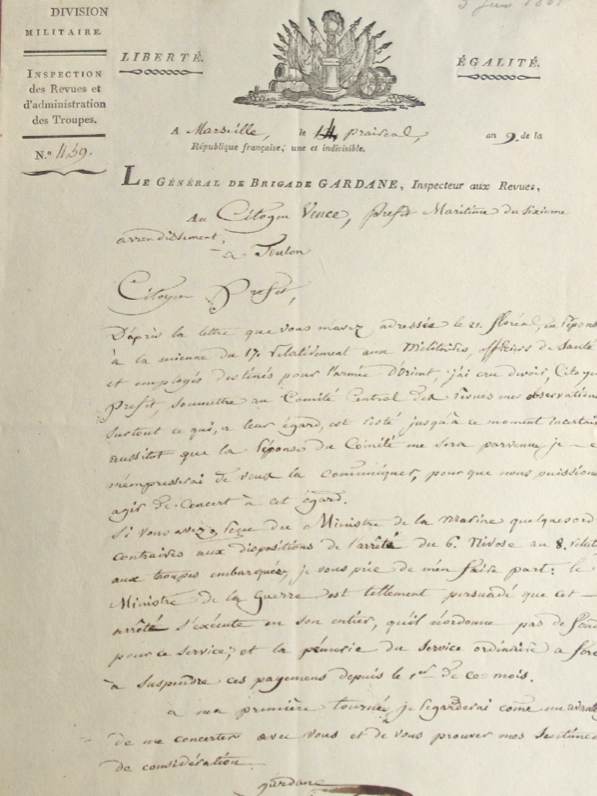 DIVISION
MILITAIRE.
3 Juin 1801
LIBERTÉ.
ÉGALITÉ.
INSPECTION
des Revues et
d'administration
des Troupes.
N.º 459.
A Marseille, le 14 prairéal, an 9. de la
République française, une et indivisible.
LE GÉNÉRAL DE BRIGADE GARDANE, Inspecteur aux Revues,
Au Citoyen Vence, préfet Maritime du sixieme
arrondissement,
à Toulon
Citoyen Préfet,
D'après la lettre que vous m'avez adressée le 21. floréal, en répons
à la mienne du 17. relativement aux Militaires, officiers de Santé
et employés destinés pour l'armée d'orient, j'ai cru devoir, Citoy
Préfet, soumettre au Comité Central des revues mes observation
surtout ce qui, a leur égard, est resté jusqu'à ce moment incertain
aussitot que la réponse du Comité me sera parvenue je
m'empresserai de vous la communiquer, pour que nous puission
agir de concert à cet égard.
Si vous avez reçue du Ministre de la Marine quelques ord
contraires aux dispositions de l'arrêté du 6. Nivose an 8. relat
aux troupes embarquées, je vous prie de m'en faire part: le
Ministre de la Guerre est tellement persuadé que cet
arrêté s'exécute en son entier, qu'il n'ordonne pas de fon
pour ce service; et la pénurie du service ordinaire a forc
à suspendre ces payemens depuis le 1er de ce mois.
a ma première tournée, je regarderai come un avant
de me concerter avec vous et de vous prouver mes sentimen
de considération.
gardane